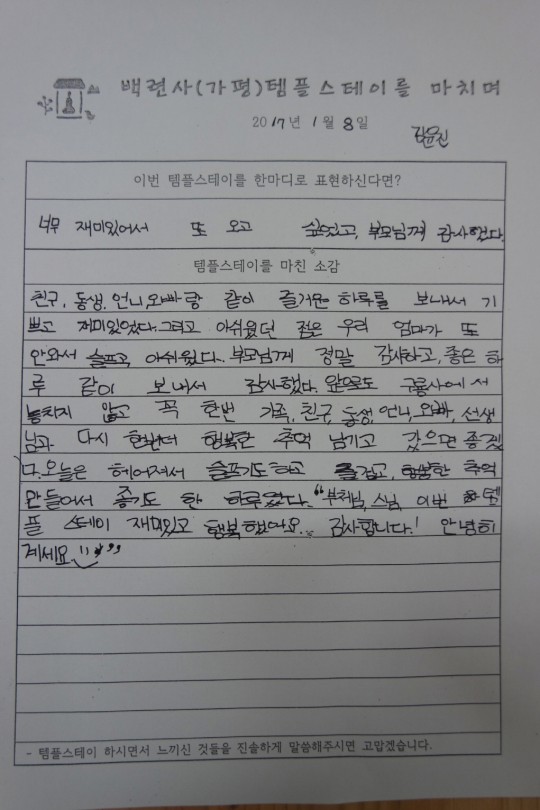 백련사(가평)템플스테이를 마치며
2017년 1월 8일
이번 템플스테이를 한마디로 표현하신다면?
너무 재미있어서 또 오고 싶었고, 부모님께 감사했다.
템플스테이를 마친 소감
친구, 동생, 언니, 오빠랑 같이 즐거운 하루를 보내서 기
쁘고 재미있었다. 그리고 아쉬웠던 점은 우리 엄마가 또
안와서 슬프고 아쉬웠다. 부모님께 정말 감사하고, 좋은 하
루 같이 보내서 감사했다. 앞으로도 구룡사에서
놓치지 않고 꼭 한번 가족, 친구, 동생, 언니, 오빠, 선생
님과 다시 한번더 행복한 추억 남기고 갔으면 좋겠
다. 오늘은 헤어져서 슬프기도하고 즐겁고, 행복한 추억
만들어서 좋기도 한 하루였다. "부처님, 스님 이번 템
플 스테이 재미있고 행복했어요. 감사합니다! 안녕히
계세요"
- 템플스테이 하시면서 느끼신 것들을 진솔하게 말씀해주시면 고맙겠습니다.